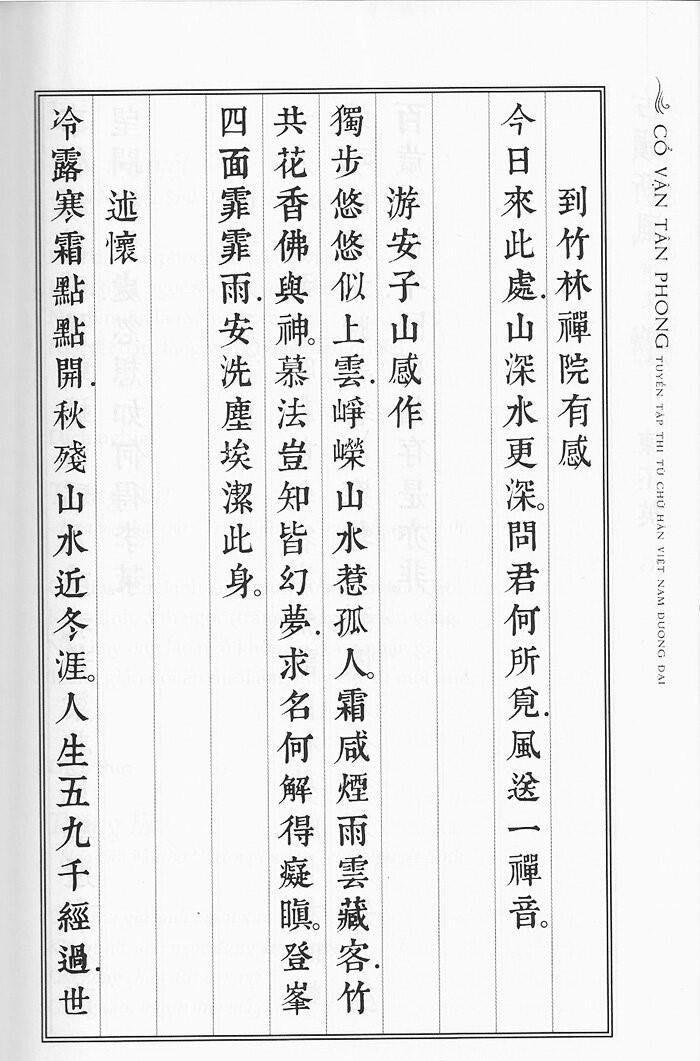 CỔ VÂN TÂN PHONG TUYỂN TẬP THI TỪ CHỮ HÁN VIỆT NAM ĐƯƠNG ĐẠI
到竹林禪院有感
今日來此處.山深水更深。問君何所覓.風送一禪音。
游安子山感作
獨步悠悠似上雲.崢嶸山水惹孤人。霜咸煙雨雲藏客.竹
共花香佛與神。慕法豈知皆幻夢.求名何解得癡瞋。登峯
四面霏霏雨.安洗塵埃潔此身。
述懷
冷露寒霜點點開.秋殘山水近冬涯。人生五九千經過.世